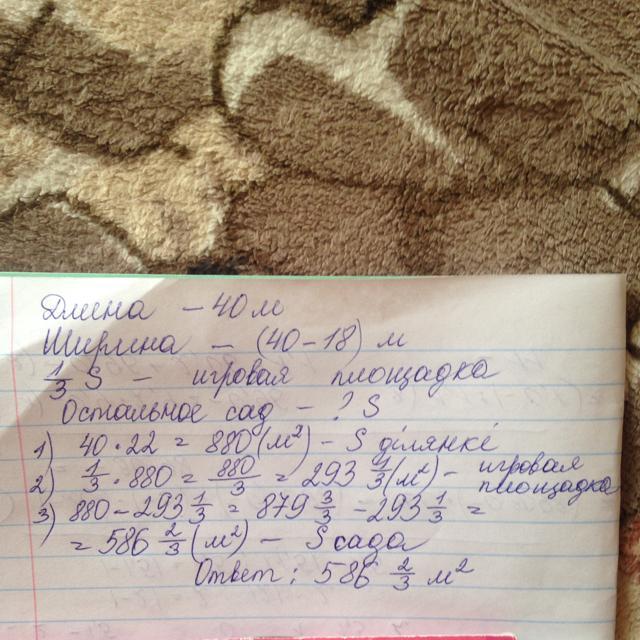 Длина – 40 м
Ширина – (40 – 18) м
1/3 S – игровая площадка
Остальное сад – ? S
1) 40 · 22 = 880 (м²) – S ділянкі
2) 1/3 · 880 = 880/3 = 293 1/3 (м²) – игровая площадка
3) 880 – 293 1/3 = 879 3/3 – 293 1/3 =
= 586 2/3 (м²) – S сада
Ответ: 586 2/3 м²